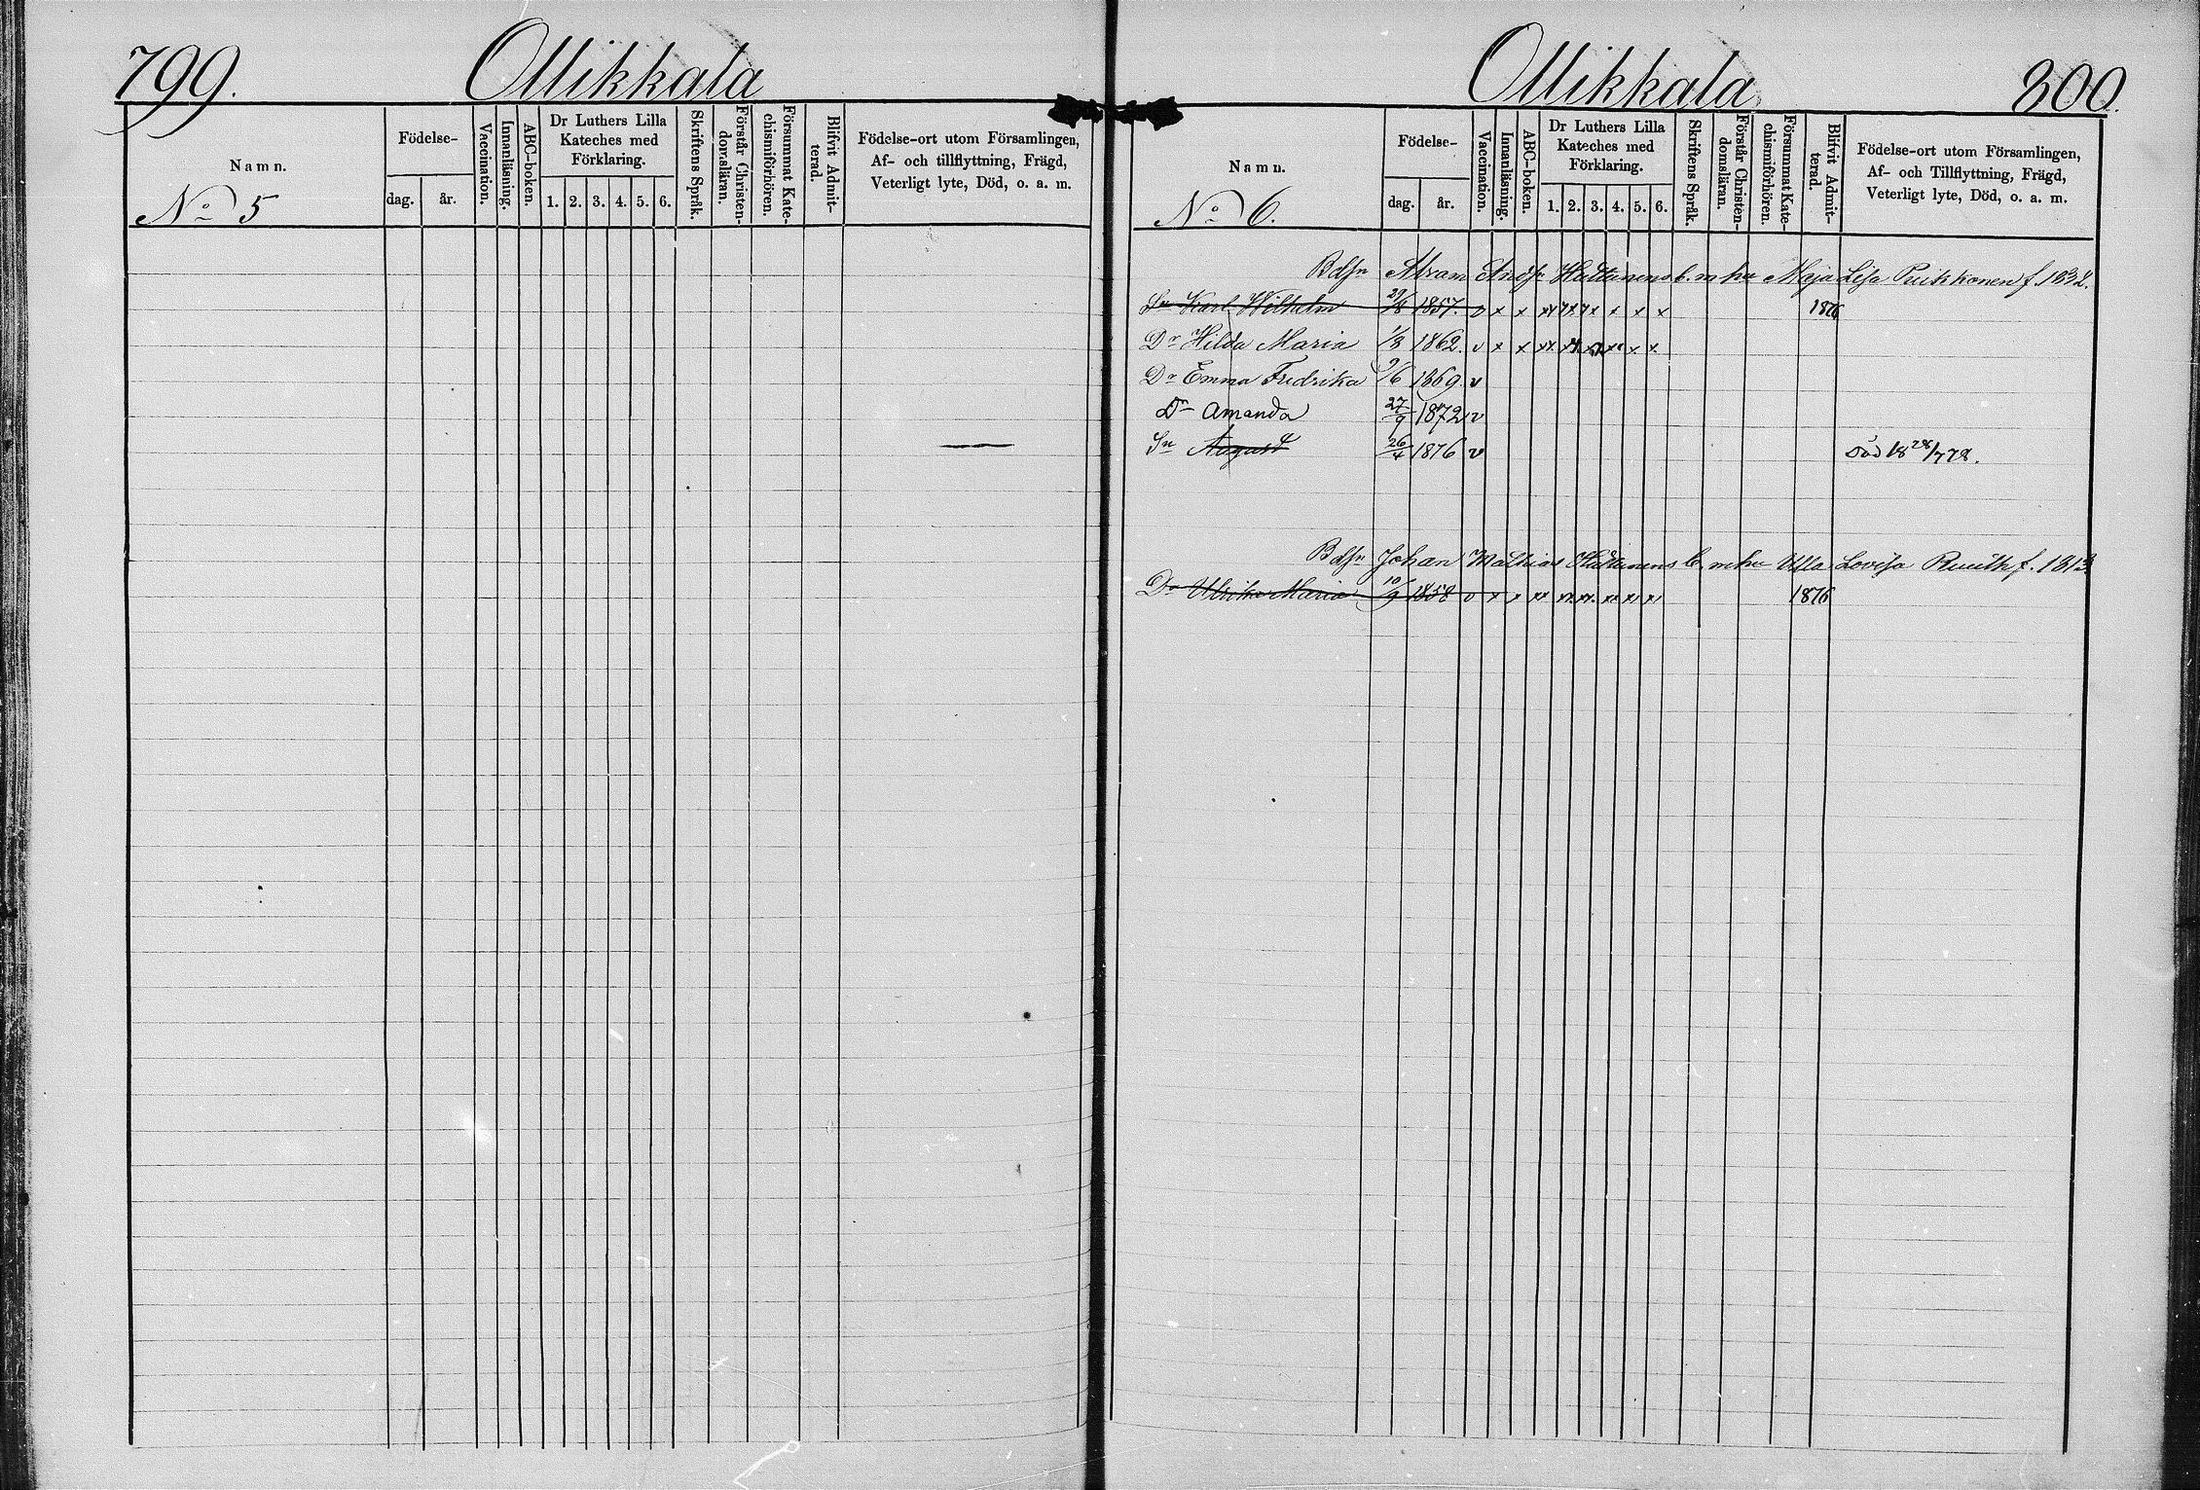 799. Ollikkala
Namn.
Födelse-
dag. år.
Vaccination.
Innanläsning.
ABC-boken.
Dr Luthers Lilla
Kateches med
Förklaring.
1. 2. 3. 4. 5. 6.
Skriftens Språk.
Förstår Christen-
domsläran.
Försummat Kate-
chismiförhören.
Blifvit Admit-
terad.
Födelse-ort utom Församlingen,
Af- och tillflyttning, Frägd,
Veterligt lyte, Död, o. a. m.
No 5
Ollikkala 800.
Namn.
Födelse-
dag. år.
Vaccination.
Innanläsning.
ABC-boken.
Dr Luthers Lilla
Kateches med
Förklaring.
1. 2. 3. 4. 5. 6.
Skriftens Språk.
Förstår Christen-
domsläran.
Försummat Kate-
chismiförhören.
Blifvit Admit-
terad.
Födelse-ort utom Församlingen,
Af- och Tillflyttning, Frägd,
Veterligt lyte, Död, o. a. m.
No 6.
Bdsn Abram Andsn b. m hu Maja Lisa Puikkonen f. 1832.
Sn Karl Wilhelm 29/8 1857. v x x x x x x 1876
Dr Hilda Maria 1/3 1862. v x x x x x x
Dr Emma Fredrika 9/6 1869. v
Dr Amanda 27/9 1872 v
Sn August 26/4 1876 v Död 18 28/7 78.
Bdsn Johan Mathias b. m hu Ulla Lovisa f. 1813
Dr Ulrika Maria 10/9 1858 v x x xx xx xx xx xx xx 1876